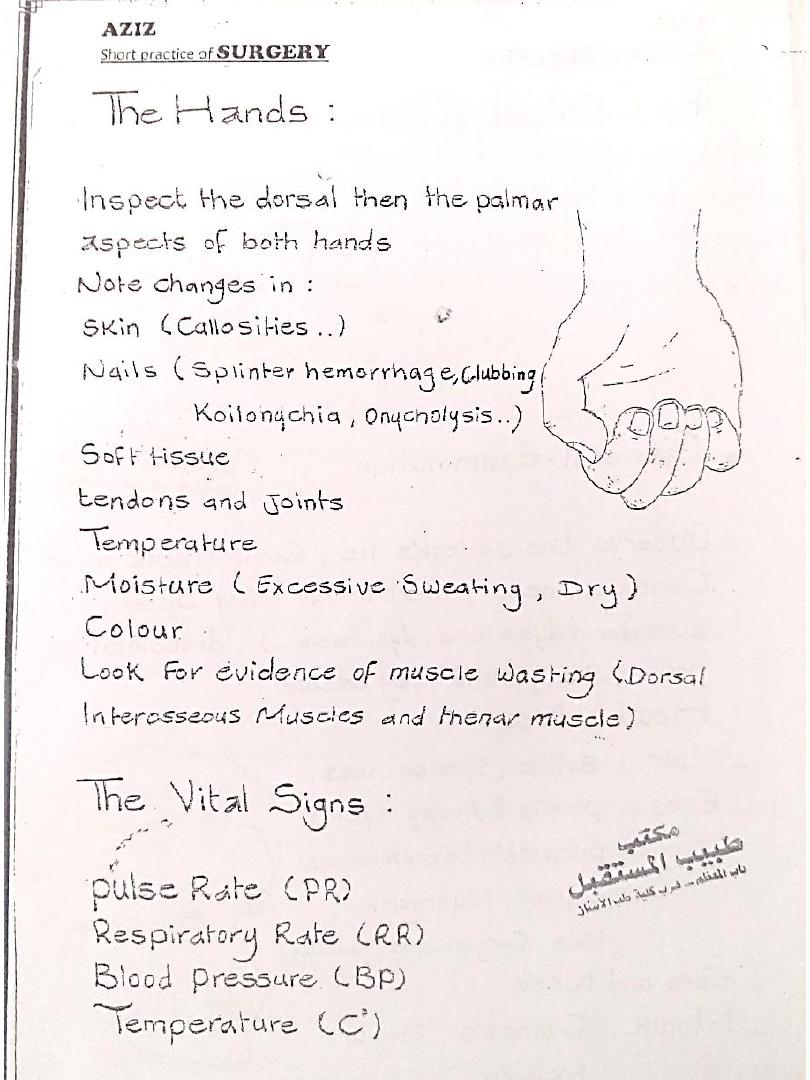 AZIZ
Short practice of SURGERY
The Hands :
Inspect the dorsal then the palmar
aspects of both hands
Note changes in :
Skin (Callosities ..)
Nails (Splinter hemorrhage, Clubbing
Koilonychia, Onycholysis..)
Soft tissue
tendons and Joints
Temperature
Moisture (Excessive Sweating, Dry)
Colour
Look For evidence of muscle wasting (Dorsal
Interosseous Muscles and thenar muscle)
The Vital Signs :
pulse Rate (PR)
Respiratory Rate (RR)
Blood pressure (BP)
Temperature (C°)
مكتب
طبيب المستقبل
باب المعظم - قرب كلية طب الأسنان